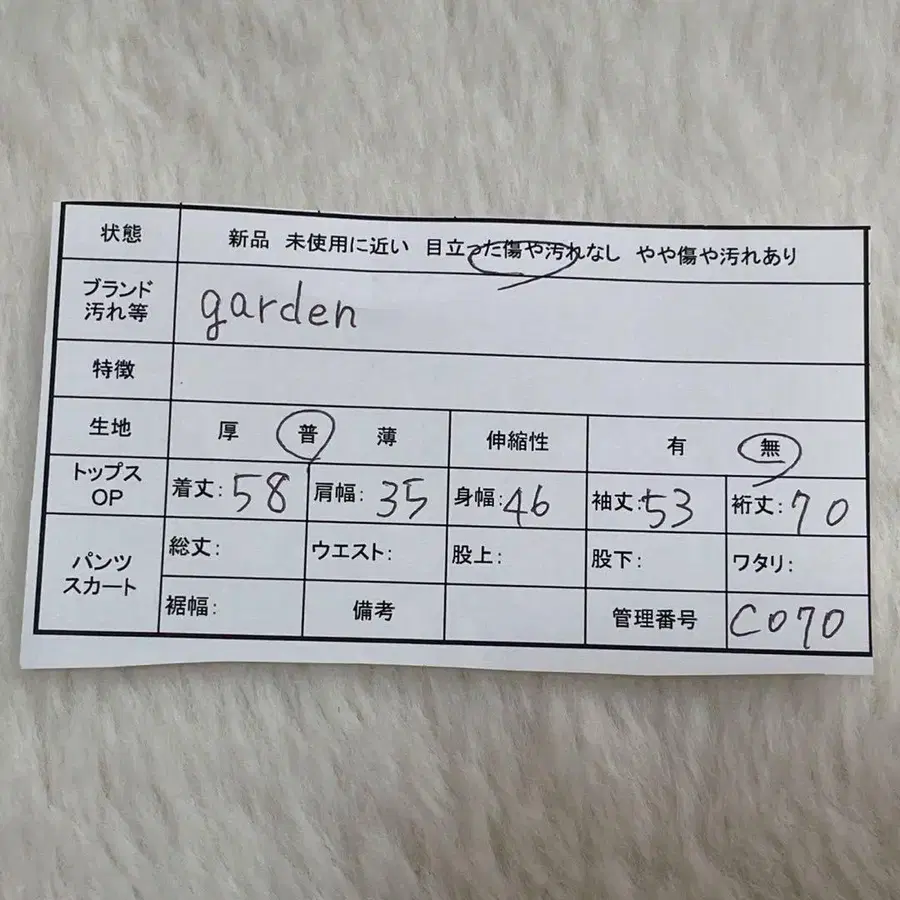 状態 新品 未使用に近い 目立った傷や汚れなし やや傷や汚れあり
ブランド
汚れ等 garden
特徴
生地 厚 普 薄 伸縮性 有 無
トップス
OP 着丈:58 肩幅:35 身幅:46 袖丈:53 裄丈:70
パンツ
スカート
総丈: ウエスト: 股上: 股下: ワタリ:
裾幅: 備考 管理番号 C070